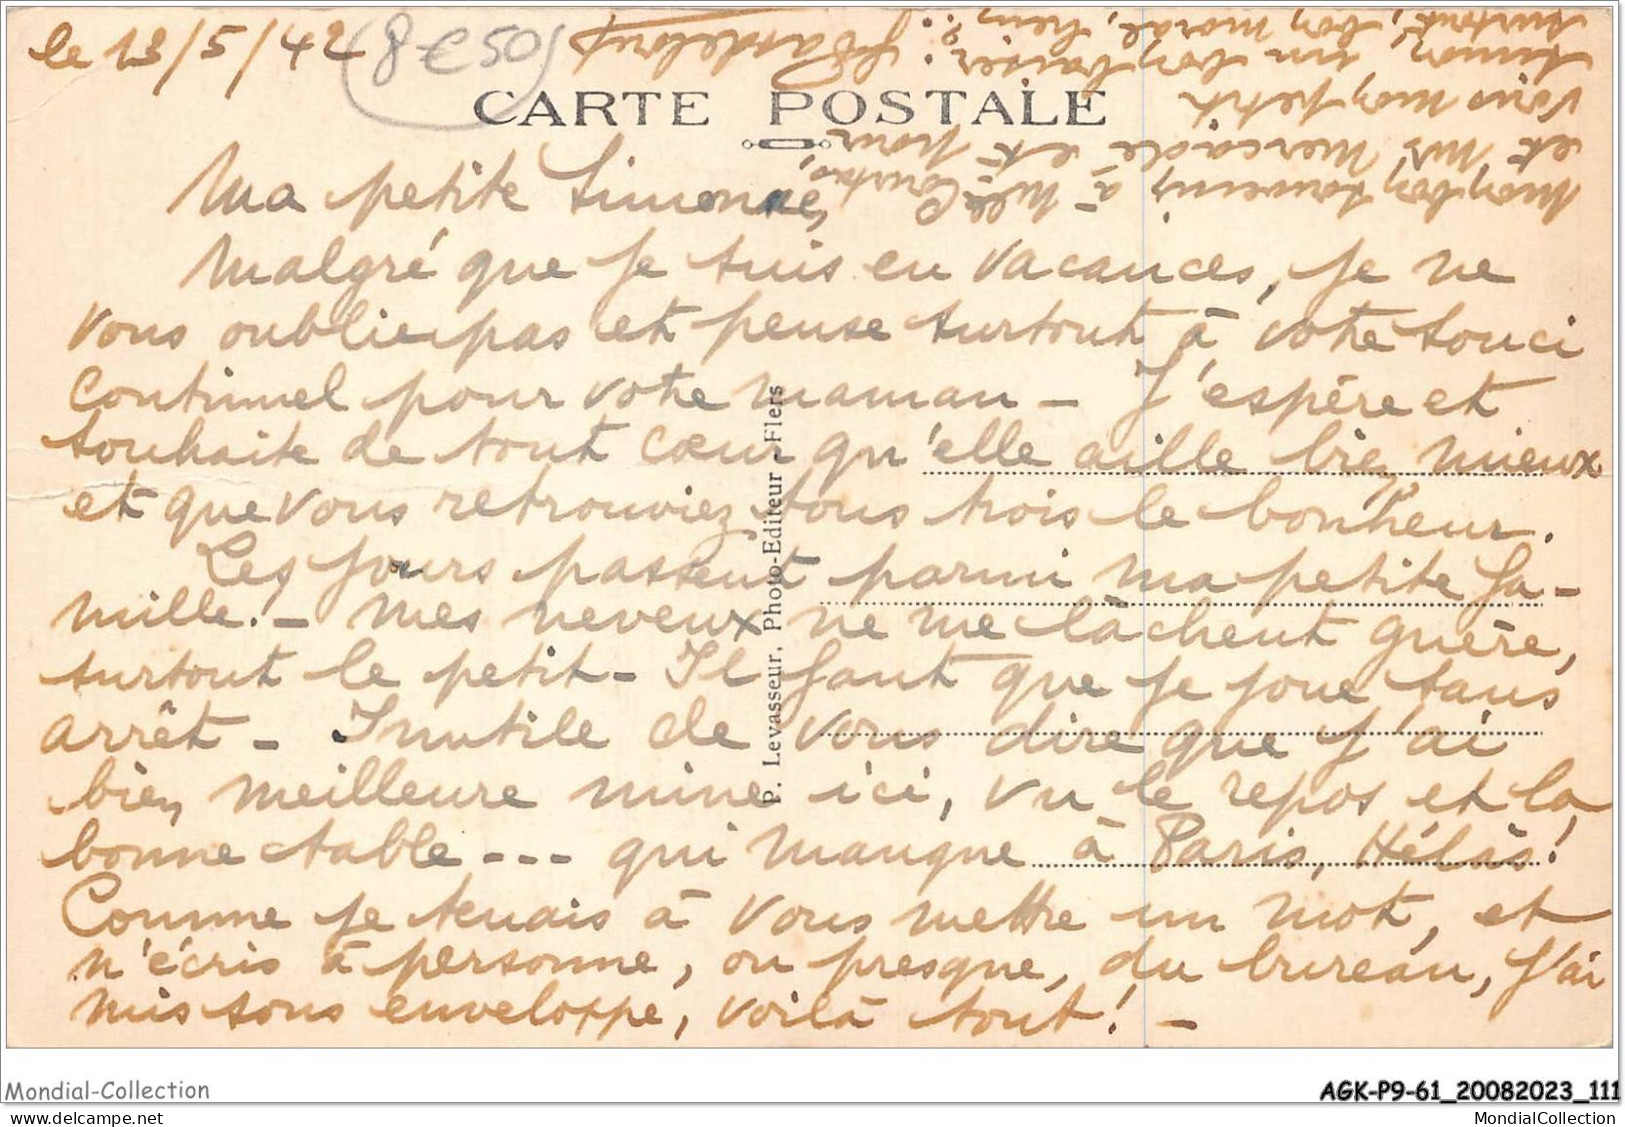 le 13/5/42
8€50
CARTE POSTALE
Ma petite Simonne,
Malgré que je suis en vacances, je ne
vous oublie pas et pense surtout à votre souci
continuel pour votre maman - J'espère et
souhaite de tout cœur qu'elle aille bien mieux
et que vous retrouviez tous trois le bonheur.
Les jours passent parmi ma petite fa-
mille. - Mes neveux ne me lâchent guère,
surtout le petit - Il faut que je joue sans
arrêt - Inutile de vous dire que j'ai
bien meilleure mine ici, vu le repos et la
bonne table --- qui manque à Paris, Hélas!
Comme je tenais à vous mettre un mot, et
n'écris à personne, ou presque, du bureau, j'ai
mis sous enveloppe, voilà tout! -
Mon bon souvenir à Mlle
et Mr Mercadié et pour
vous mon petit
Simon, un bon baiser.
surtout, bon moral, hein ?
P. Levasseur. Photo-Editeur - Flers
Mondial-Collection
AGK-P9-61_20082023_111
MondialCollection